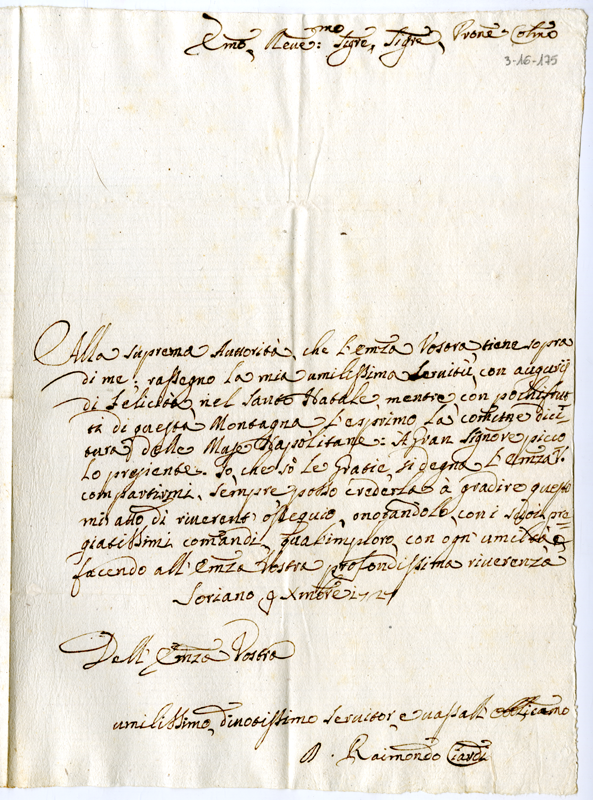 Emo, Reue:mo Sigre, Sigre, Prone Colmo
3-16-175
Alla suprema Autorità, che l'Emza Vostra tiene sopra
di me, rassegno la mia umilissima seruitù, con augurij
di Felicità, nel Santo Natale, mentre con pochi frut-
ti di questa Montagna l'esprimo la comune dici-
tura delle Mase Napolitane: A gran Signore picco
lo presente. Io, che sò le Gratie, si degna l'Emza V.
compartirmi, sempre posso crederla à gradire questo
mio atto di riuerent'ossequio, onorandolo, con i suoi pre-
giatissimi comandi, qual'imploro, con ogn'umiltà, e
facendo all'Emza Vostra profondissima riuerenza
Soriano 9 Xmbre 1727
Dell'Emza Vostra
umilissimo, diuotissimo seruitor, e uassall'
Raimondo